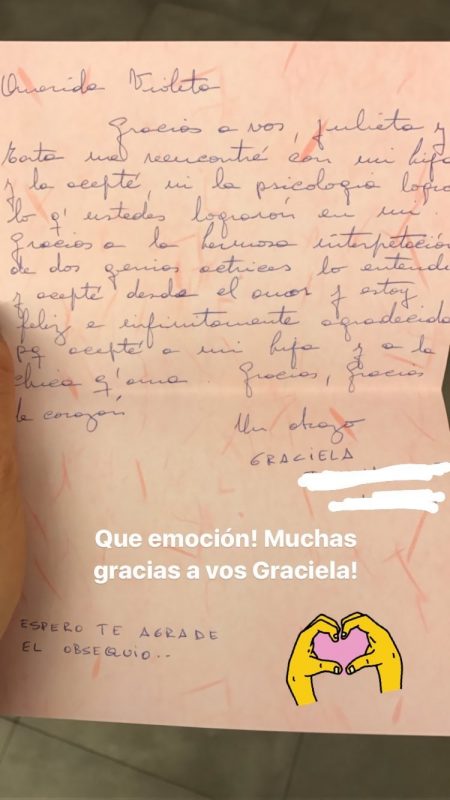 Querida Violeta
Gracias a vos, Julieta y
me reencontré con mi hija
y la acepté, ni la psicologia logro
lo q' ustedes lograron en mi.
Gracias a la hermosa interpretación
de dos genias actrices lo entendi
y acepté desde el amor y estoy
feliz e infinitamente agradecida
pq acepté a mi hija y a la
chica q' ama. Gracias, Gracias
de corazón
Un abrazo
GRACIELA
Que emoción! Muchas
gracias a vos Graciela!
ESPERO TE AGRADE
EL OBSEQUIO..